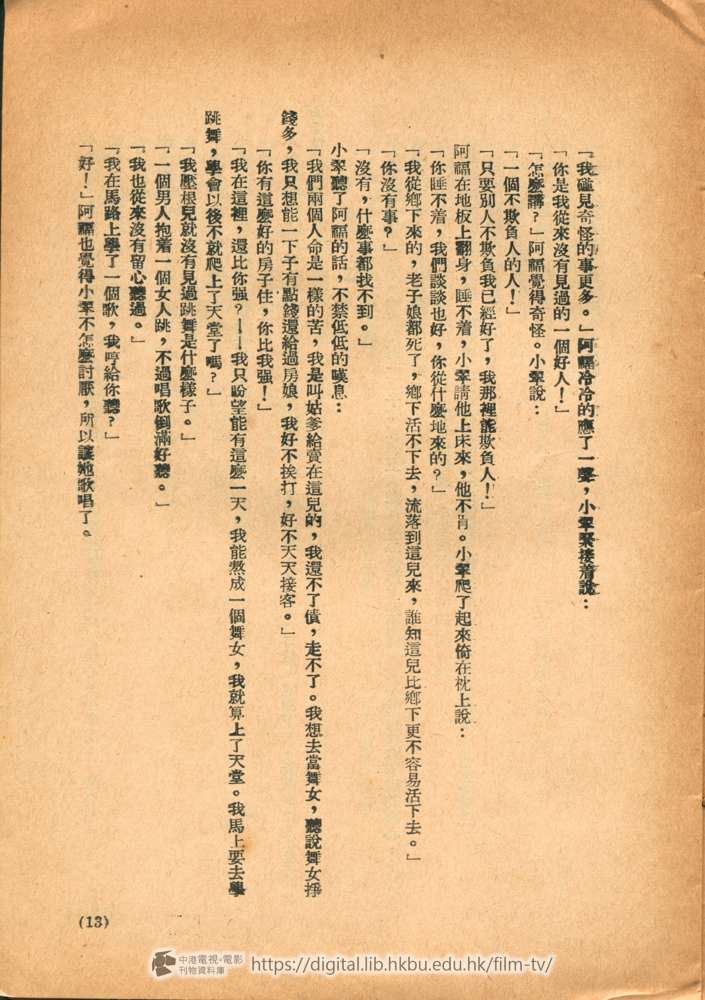 「我碰見奇怪的事更多。」阿福冷冷的應了一聲，小翠緊接着說：
「你是我從來沒有見過的一個好人！」
「怎麼講？」阿福覺得奇怪。小翠說：
「一個不欺負人的人！」
「只要別人不欺負我已經好了，我那裡能欺負人！」
阿福在地板上翻身，睡不着，小翠請他上床來，他不肯。小翠爬了起來倚在枕上說：
「你睡不着，我們談談也好，你從什麼地來的？」
「我從鄉下來的，老子娘都死了，鄉下活不下去，流落到這兒來，誰知這兒比鄉下更不容易活下去。」
「你沒有事？」
「沒有，什麼事都找不到。」
小翠聽了阿福的話，不禁低低的嘆息：
「我們兩個人命是一樣的苦，我是叫姑爹給賣在這兒的，我還不了債，走不了。我想去當舞女，聽說舞女掙
錢多，我只想能一下子有點錢還給過房娘，我好不挨打，好不天天接客。」
「你有這麼好的房子住，你比我强！」
「我在這裡，還比你强？——我只盼望能有這麼一天，我能熬成一個舞女，我就算上了天堂。我馬上要去學
跳舞，學會以後不就爬上了天堂了嗎？」
「我壓根兒就沒有見過跳舞是什麼樣子。」
「一個男人抱着一個女人跳，不過唱歌倒滿好聽。」
「我也從來沒有留心聽過。」
「我在馬路上學了一個歌，我哼給你聽？」
「好！」阿福也覺得小翠不怎麼討厭，所以讓她歌唱了。
(13)
中港電視·電影
刊物資料庫
https://digital.lib.hkbu.edu.hk/film-tv/